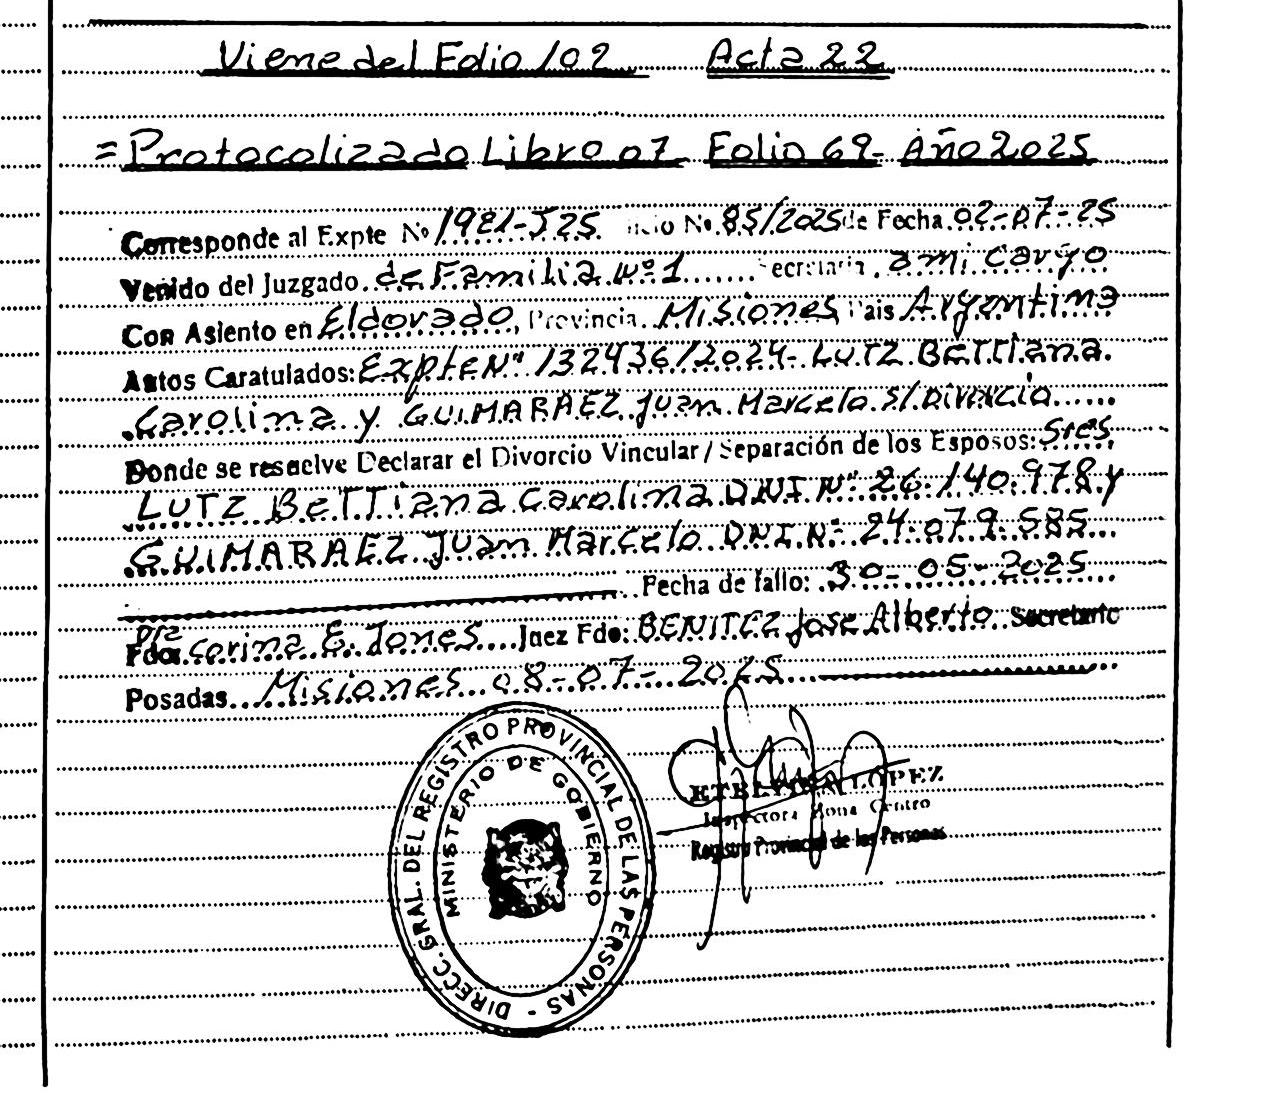 Viene del Folio 102 Acta 22
= Protocolizado Libro 07 Folio 69- Año 2025
Corresponde al Expte Nº 1981-J25. Oficio Nº 85/2025 de Fecha 02-07-25
Venido del Juzgado de Familia Nº 1 Secretaria a mi cargo
Con Asiento en Eldorado, Provincia Misiones Pais Argentina
Autos Caratulados: Expte Nº 132436/2024- LUTZ Bettiana
Carolina y GUIMARAEZ Juan Marcelo s/Divorcio
Donde se resuelve Declarar el Divorcio Vincular / Separación de los Esposos: Sres
LUTZ Bettiana Carolina DNI Nº 26.140.978 y
GUIMARAEZ Juan Marcelo DNI Nº 24.079.585
Fecha de fallo: 30-05-2025
Dra
Fdo: Corina E. Jones Juez Fdo: BENITEZ Jose Alberto Secretario
Posadas Misiones 08-07-2025
DIRECC. GRAL. DEL REGISTRO PROVINCIAL DE LAS PERSONAS -
MINISTERIO DE GOBIERNO
LOPEZ
Inspectora Zona Centro
Registro Provincial de las Personas